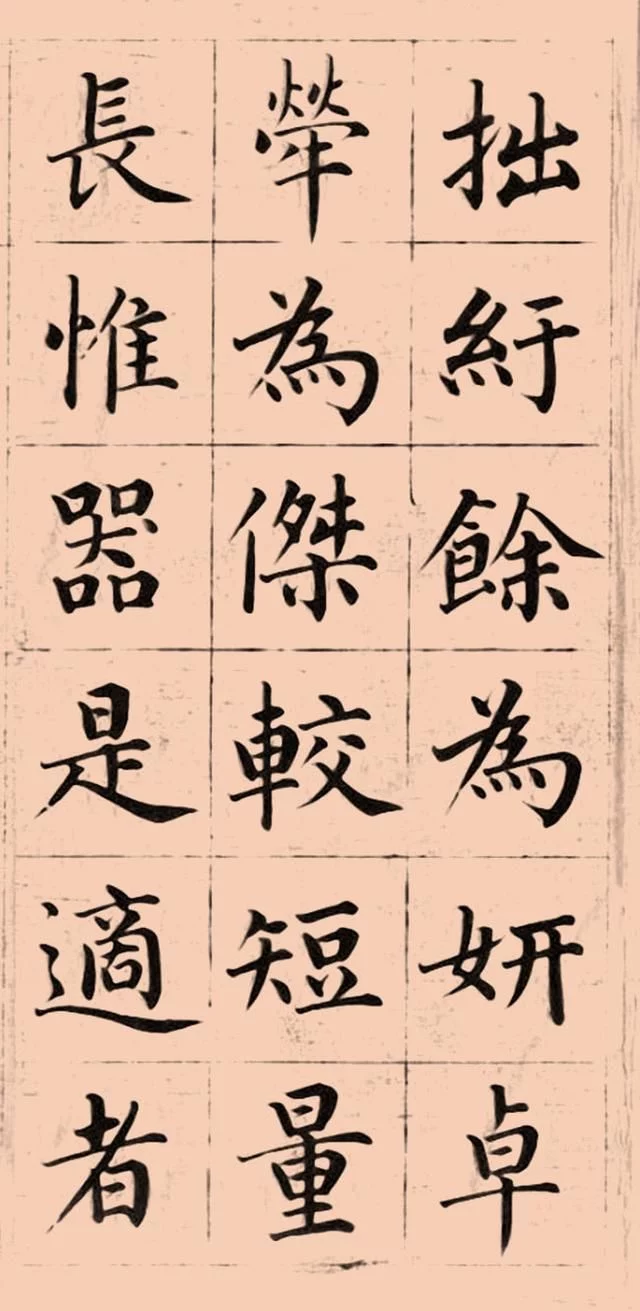 拙紆餘為妍卓
犖為傑較短量
長惟器是適者